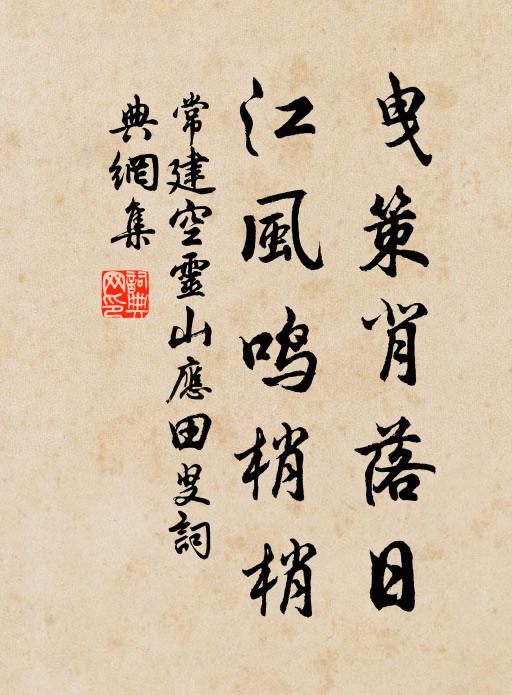 曳策背落日
江風鳴梢梢
常建空靈山應田叟詞
典網集
詞典
网印